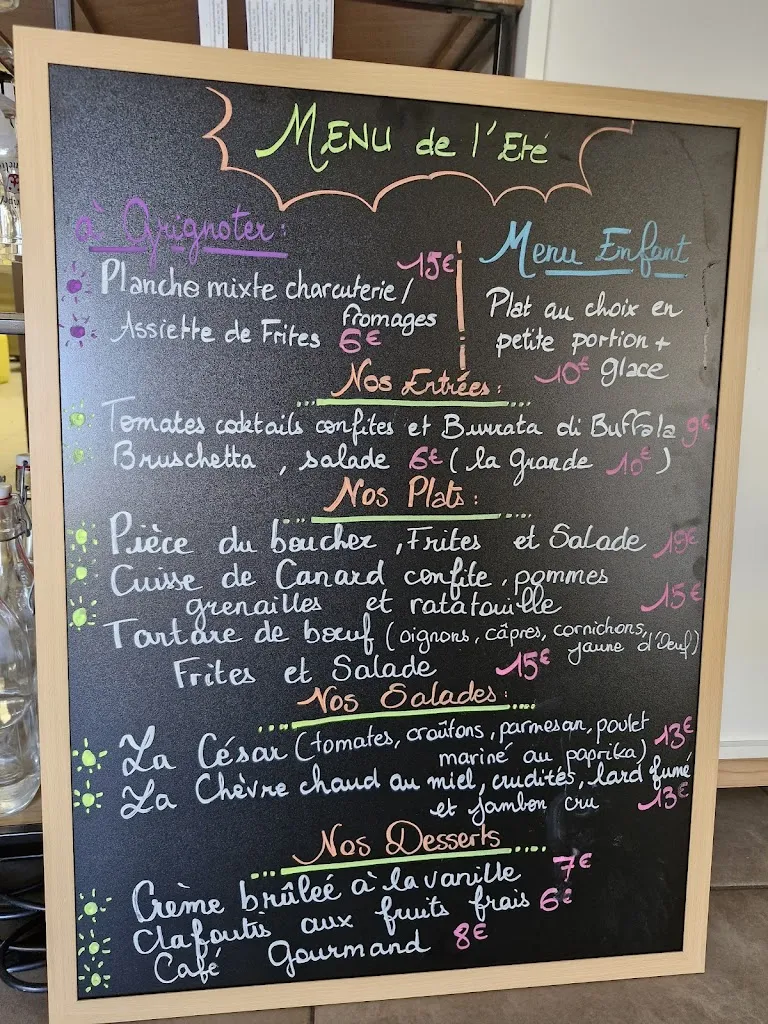 MENU de l'Eté
à Grignoter:
Planche mixte charcuterie/ 15€
fromages
Assiette de Frites 6€
Menu Enfant
Plat au choix en
petite portion +
10€ glace
Nos Entrées:
Tomates cocktails confites et Burrata di Buffala 9€
Bruschetta, salade 6€ (la Grande 10€)
Nos Plats:
Pièce du boucher, Frites et Salade 19€
Cuisse de Canard confite, pommes
grenailles et ratatouille 15€
Tartare de bœuf (oignons, câpres, cornichons,
jaune d'Oeuf)
Frites et Salade 15€
Nos Salades:
La César (tomates, croûtons, parmesan, poulet 13€
mariné au paprika)
La Chèvre chaud au miel, crudités, lard fumé
et jambon cru 13€
Nos Desserts
Crème brûleé à la vanille 7€
Clafoutis aux fruits frais 6€
Café Gourmand 8€